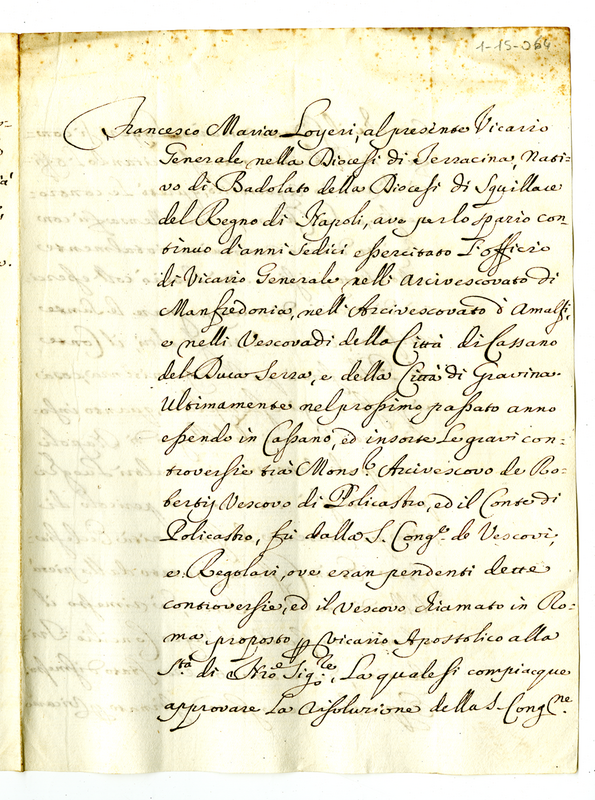 1-15-064
Francesco Maria Loyeri, al presente Vicario
Generale nella Diocesi di Terracina, Nati-
vo di Badolato della Diocesi di Squillace
del Regno di Napoli, ave per lo spazio con-
tinuo d'anni sedici essercitato L'officio
di Vicario Generale nelli Arcivescovato di
Manfredonia, nell'Arcivescovato d'Amalfi,
e nelli Vescovadi della Città di Cassano
del Duca Serra, e della Città di Gravina.
Ultimamente nel prossimo passato anno
essendo in Cassano, ed insorte Le gravi con-
troversie trà Mons.r Arcivescovo de Ro-
bertij Vescovo di Policastro, ed il Conte di
Policastro, fù dalla S. Cong.ne de Vescovi,
e Regolari, ove eran pendenti dette
controversie, ed il Vescovo chiamato in Ro-
ma proposto p Vicario Apostolico alla
S.tà di Nro Sig.re, La quale si compiacque
approvare La risoluzione della S. Cong.ne